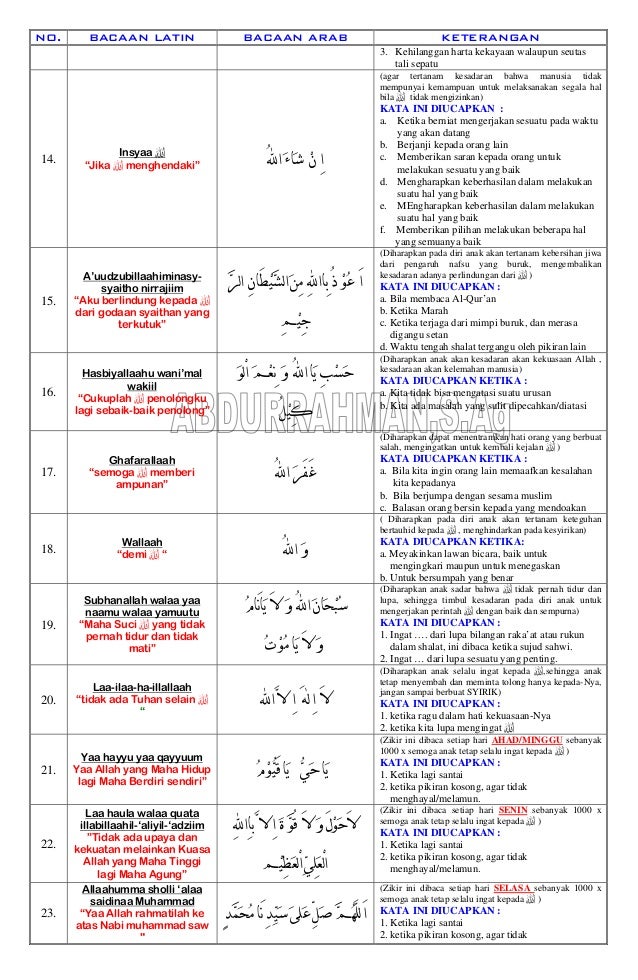 NO. BACAAN LATIN BACAAN ARAB KETERANGAN
3. Kehilanggan harta kekayaan walaupun seutas
tali sepatu
14.
Insyaa ﷲ
“Jika ﷲ menghendaki”
اِ نْ شَاءَ اللهُ
(agar tertanam kesadaran bahwa manusia tidak
mempunyai kemampuan untuk melaksanakan segala hal
bila ﷲ tidak mengizinkan)
KATA INI DIUCAPKAN :
a. Ketika berniat mengerjakan sesuatu pada waktu
yang akan datang
b. Berjanji kepada orang lain
c. Memberikan saran kepada orang untuk
melakukan sesuatu yang baik
d. Mengharapkan keberhasilan dalam melakukan
suatu hal yang baik
e. MEngharapkan keberhasilan dalam melakukan
suatu hal yang baik
f. Memberikan pilihan melakukan beberapa hal
yang semuanya baik
15.
A’uudzubillaahiminasy-
syaitho nirrajiim
“Aku berlindung kepada ﷲ
dari godaan syaithan yang
terkutuk”
اَ عُوْ ذُ بِاللهِ مِنَ الشَّيْطَانِ الرَّ
جِيْمِ
(Diharapkan pada diri anak akan tertanam kebersihan jiwa
dari pengaruh nafsu yang buruk, mengembalikan
kesadaran adanya perlindungan dari ﷲ )
KATA INI DIUCAPKAN :
a. Bila membaca Al-Qur’an
b. Ketika Marah
c. Ketika terjaga dari mimpi buruk, dan merasa
digangu setan
d. Waktu tengah shalat tergangu oleh pikiran lain
16.
Hasbiyallaahu wani’mal
wakiil
“Cukuplah ﷲ penolongku
lagi sebaik-baik penolong”
حَسْبِيَ اللهُ وَ نِعْمَ الْوَ
كِيْلُ
(Diharapkan anak akan kesadaran akan kekuasaan Allah ,
kesadaraan akan kelemahan manusia)
KATA DIUCAPKAN KETIKA :
a. Kita tidak bisa mengatasi suatu urusan
b. Kita ada masalah yang sulit dipecahkan/diatasi
ABDURRAHMAN,S.Ag
17.
Ghafarallaah
“semoga ﷲ memberi
ampunan”
غَفَرَ اللهُ
(Diharapkan dapat menentramkan hati orang yang berbuat
salah, mengingatkan untuk kembali kejalan ﷲ )
KATA DIUCAPKAN KETIKA :
a. Bila kita ingin orang lain memaafkan kesalahan
kita kepadanya
b. Bila berjumpa dengan sesama muslim
c. Balasan orang bersin kepada yang mendoakan
18.
Wallaah
“demi ﷲ “
وَ اللهُ
( Diharapkan pada diri anak akan tertanam keteguhan
bertauhid kepada ﷲ , menghindarkan pada kesyirikan)
KATA DIUCAPKAN KETIKA:
a. Meyakinkan lawan bicara, baik untuk
mengingkari maupun untuk menegaskan
b. Untuk bersumpah yang benar
19.
Subhanallah walaa yaa
naamu walaa yamuutu
“Maha Suci ﷲ yang tidak
pernah tidur dan tidak
mati”
سُبْحَانَ اللهُ وَ لَا يَنَامُ
وَلَا يَمُوْتُ
(Diharapkan anak sadar bahwa ﷲ tidak pernah tidur dan
lupa, sehingga timbul kesadaran pada diri anak untuk
mengerjakan perintah ﷲ dengan baik dan sempurna)
KATA INI DIUCAPKAN :
1. Ingat …. dari lupa bilangan raka’at atau rukun
dalam shalat, ini dibaca ketika sujud sahwi.
2. Ingat … dari lupa sesuatu yang penting.
20.
Laa-ilaa-ha-illallaah
“tidak ada Tuhan selain ﷲ
“
لَا اِلٰهَ اِلَّا الله
(Diharapkan anak selalu ingat kepada ﷲ,sehingga anak
tetap menyembah dan meminta tolong hanya kepada-Nya,
jangan sampai berbuat SYIRIK)
KATA INI DIUCAPKAN :
1. ketika ragu dalam hati kekuasaan-Nya
2. ketika kita lupa mengingat ﷲ
21.
Yaa hayyu yaa qayyuum
Yaa Allah yang Maha Hidup
lagi Maha Berdiri sendiri”
يَاحَيُّ يَا قَيُّوْمُ
(Zikir ini dibaca setiap hari AHAD/MINGGU sebanyak
1000 x semoga anak tetap selalu ingat kepada ﷲ )
KATA INI DIUCAPKAN :
1. Ketika lagi santai
2. ketika pikiran kosong, agar tidak
menghayal/melamun.
22.
Laa haula walaa quata
illabillaahil-‘aliyil-‘adziim
”Tidak ada upaya dan
kekuatan melainkan Kuasa
Allah yang Maha Tinggi
lagi Maha Agung”
لَاحَوْلَ وَلَا قُوَّةَ اِلَّا بِاللهِ
الْعَلِيِّ الْعَظِيْمِ
(Zikir ini dibaca setiap hari SENIN sebanyak 1000 x
semoga anak tetap selalu ingat kepada ﷲ )
KATA INI DIUCAPKAN :
1. Ketika lagi santai
2. ketika pikiran kosong, agar tidak
menghayal/melamun.
23.
Allaahumma sholli ‘alaa
saidinaa Muhammad
“Yaa Allah rahmatilah ke
atas Nabi muhammad saw
”
اَللّٰهُمَّ صَلِّ عَلَى سَيِّدِ نَا مُحَمَّدٍ
(Zikir ini dibaca setiap hari SELASA sebanyak 1000 x
semoga anak tetap selalu ingat kepada ﷲ )
KATA INI DIUCAPKAN :
1. Ketika lagi santai
2. ketika pikiran kosong, agar tidak